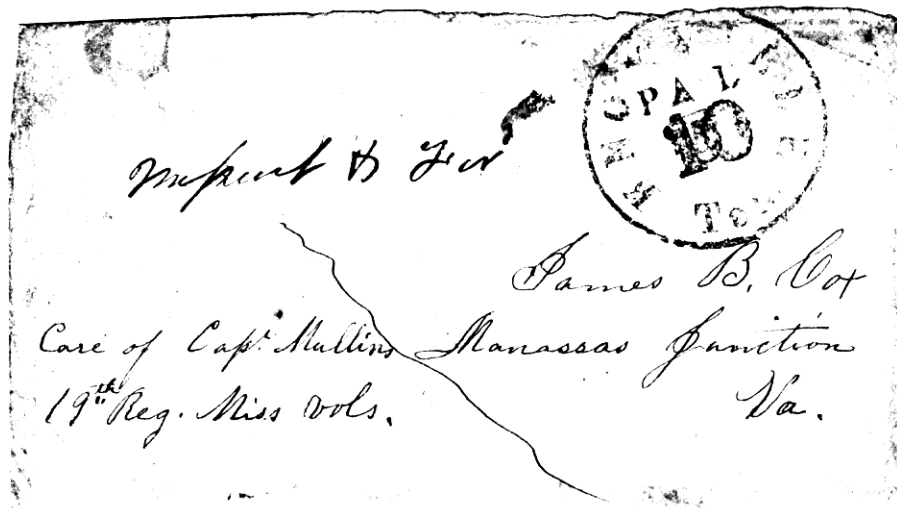 KNOXVILLE
PAID
10
Ten
James B. Cox
Care of Capt. Mullins Manassas Junction
19th Reg. Miss vols. Va.